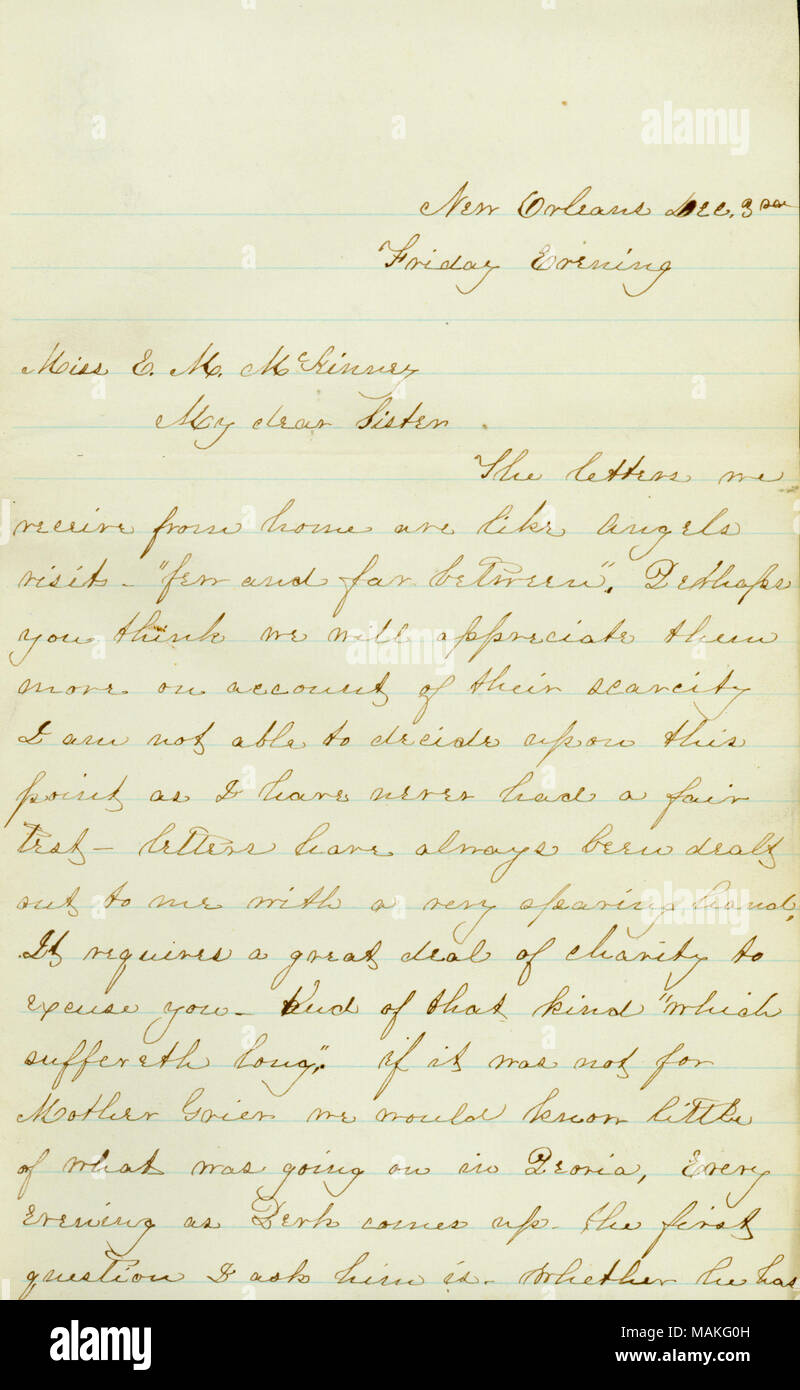 New Orleans Dec. 3
Friday Evening
Miss E. M. McKinney
My dear Sister
The letters we
receive from home are like Angels
visit - "few and far between". Perhaps
you think we will appreciate them
more on account of their scarcity
I am not able to decide upon this
point as I have never had a fair
test - letters have always been dealt
out to me with a very sparing hand.
It requires a great deal of charity to
excuse you - And of that kind "which
suffereth long". if it was not for
Mother Grier we would know little
of what was going on in Peoria, Every
Evening as Perk comes up - the first
question I ask him is - Whether he has
alamy
a
alamy
Image ID: MAKG0H
www.alamy.com